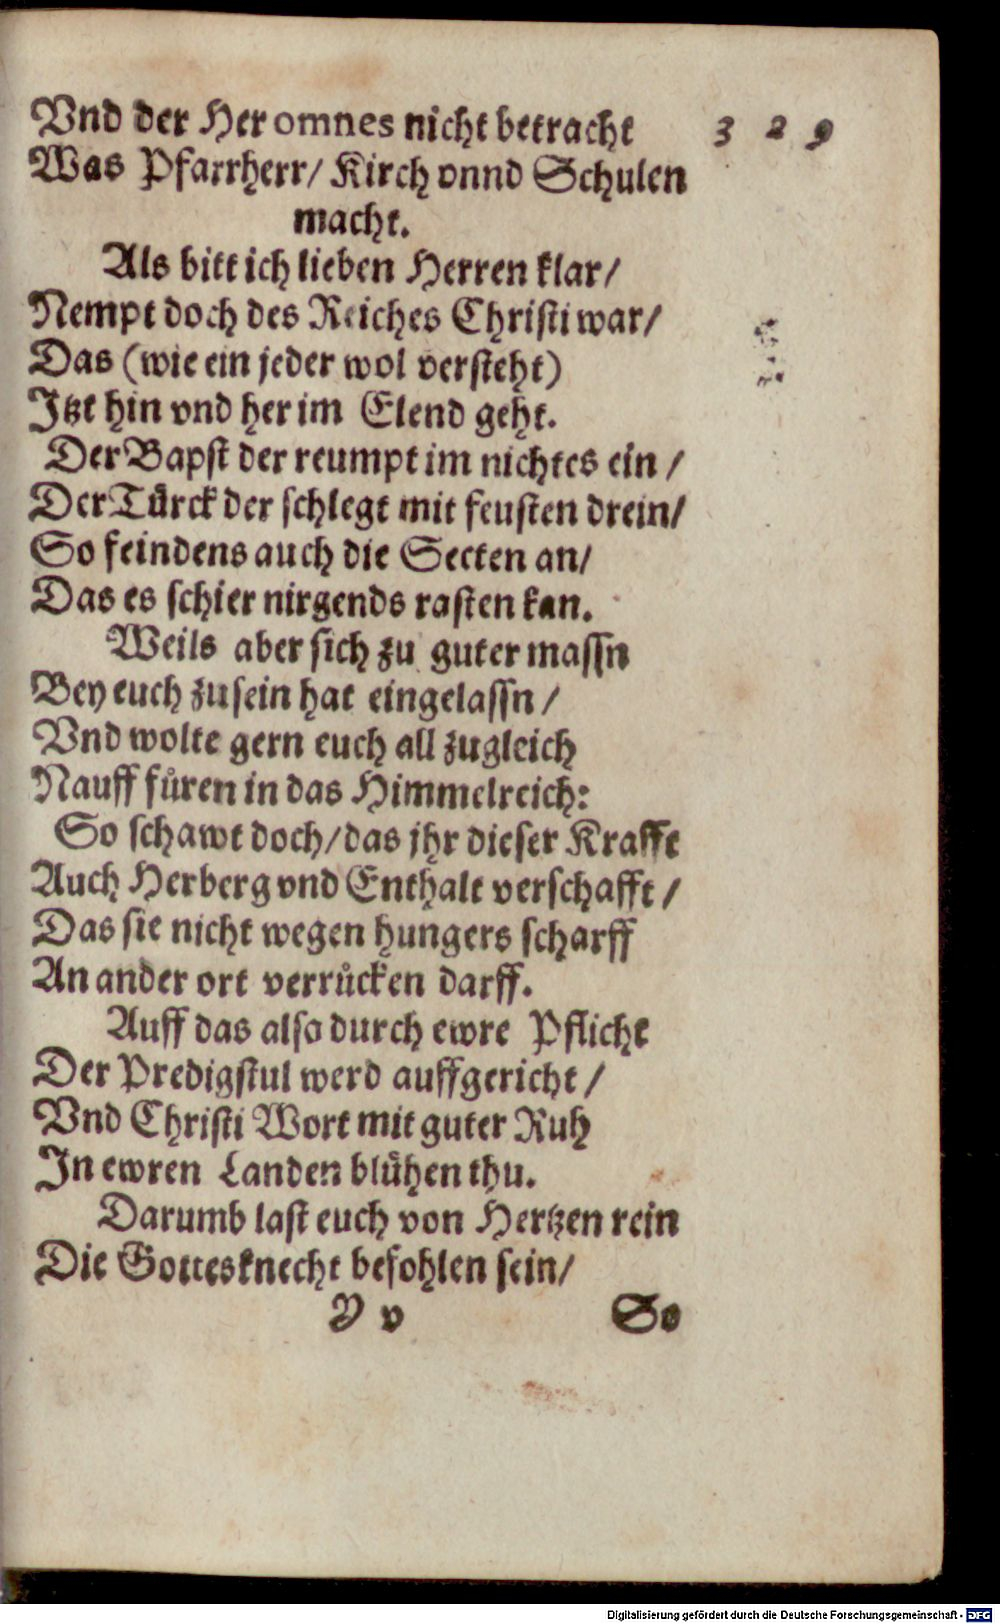 Vnd der Her omnes nicht betracht 329
Was Pfarrherr/ Kirch vnnd Schulen
macht.
Als bitt ich lieben Herren klar/
Nempt doch des Reiches Christi war/
Das (wie ein jeder wol versteht)
Itzt hin vnd her im Elend geht.
Der Bapst der reumpt im nichtes ein/
Der Tůrck der schlegt mit feusten drein/
So feindens auch die Secten an/
Das es schier nirgends rasten kan.
Weils aber sich zu guter massn
Bey euch zu sein hat eingelassn/
Vnd wolte gern euch all zugleich
Nauff fůren in das Himmelreich:
So schawt doch/ das jhr dieser Krafft
Auch Herberg vnd Enthalt verschafft/
Das sie nicht wegen hungers scharff
An ander ort verrůcken darff.
Auff das also durch ewre Pflicht
Der Predigstul werd auffgericht/
Vnd Christi Wort mit guter Ruh
In ewren Landen blůhen thu.
Darumb last euch von Hertzen rein
Die Gottesknecht befohlen sein/
Y v So
Digitalisierung gefördert durch die Deutsche Forschungsgemeinschaft - DFG